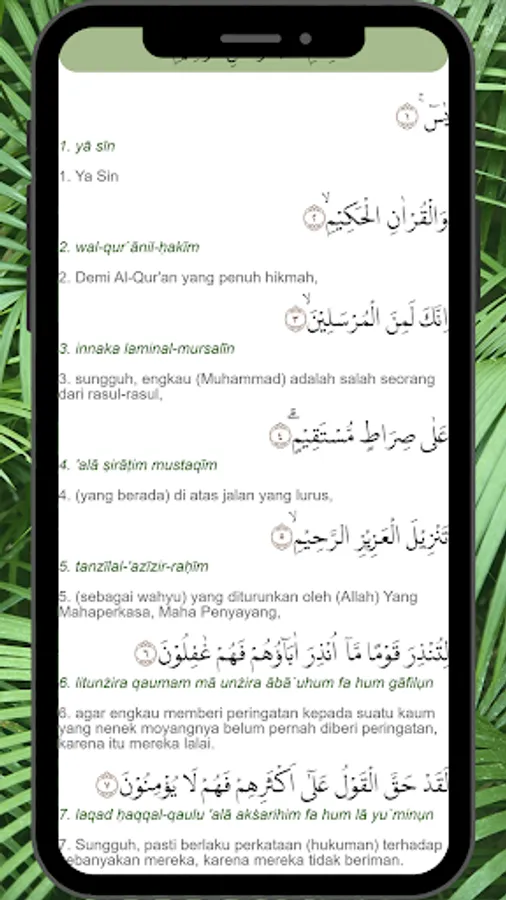 يٰسۤ ۚ ١
1. yā sīn
1. Ya Sin
وَالْقُرْاٰنِ الْحَكِيْمِۙ ٢
2. wal-qur`ānil-ḥakīm
2. Demi Al-Qur'an yang penuh hikmah,
اِنَّكَ لَمِنَ الْمُرْسَلِيْنَۙ ٣
3. innaka laminal-mursalīn
3. sungguh, engkau (Muhammad) adalah salah seorang
dari rasul-rasul,
عَلٰى صِرَاطٍ مُّسْتَقِيْمٍۗ ٤
4. 'alā ṣirāṭim mustaqīm
4. (yang berada) di atas jalan yang lurus,
تَنْزِيْلَ الْعَزِيْزِ الرَّحِيْمِۙ ٥
5. tanzīlal-'azīzir-raḥīm
5. (sebagai wahyu) yang diturunkan oleh (Allah) Yang
Mahaperkasa, Maha Penyayang,
لِتُنْذِرَ قَوْمًا مَّآ اُنْذِرَ اٰبَاۤؤُهُمْ فَهُمْ غٰفِلُوْنَ ٦
6. litunżira qaumam mā unżira ābā`uhum fa hum gāfilụn
6. agar engkau memberi peringatan kepada suatu kaum
yang nenek moyangnya belum pernah diberi peringatan,
karena itu mereka lalai.
لَقَدْ حَقَّ الْقَوْلُ عَلٰٓى اَكْثَرِهِمْ فَهُمْ لَا يُؤْمِنُوْنَ ٧
7. laqad ḥaqqal-qaulu 'alā akṡarihim fa hum lā yu`minụn
7. Sungguh, pasti berlaku perkataan (hukuman) terhadap
kebanyakan mereka, karena mereka tidak beriman.